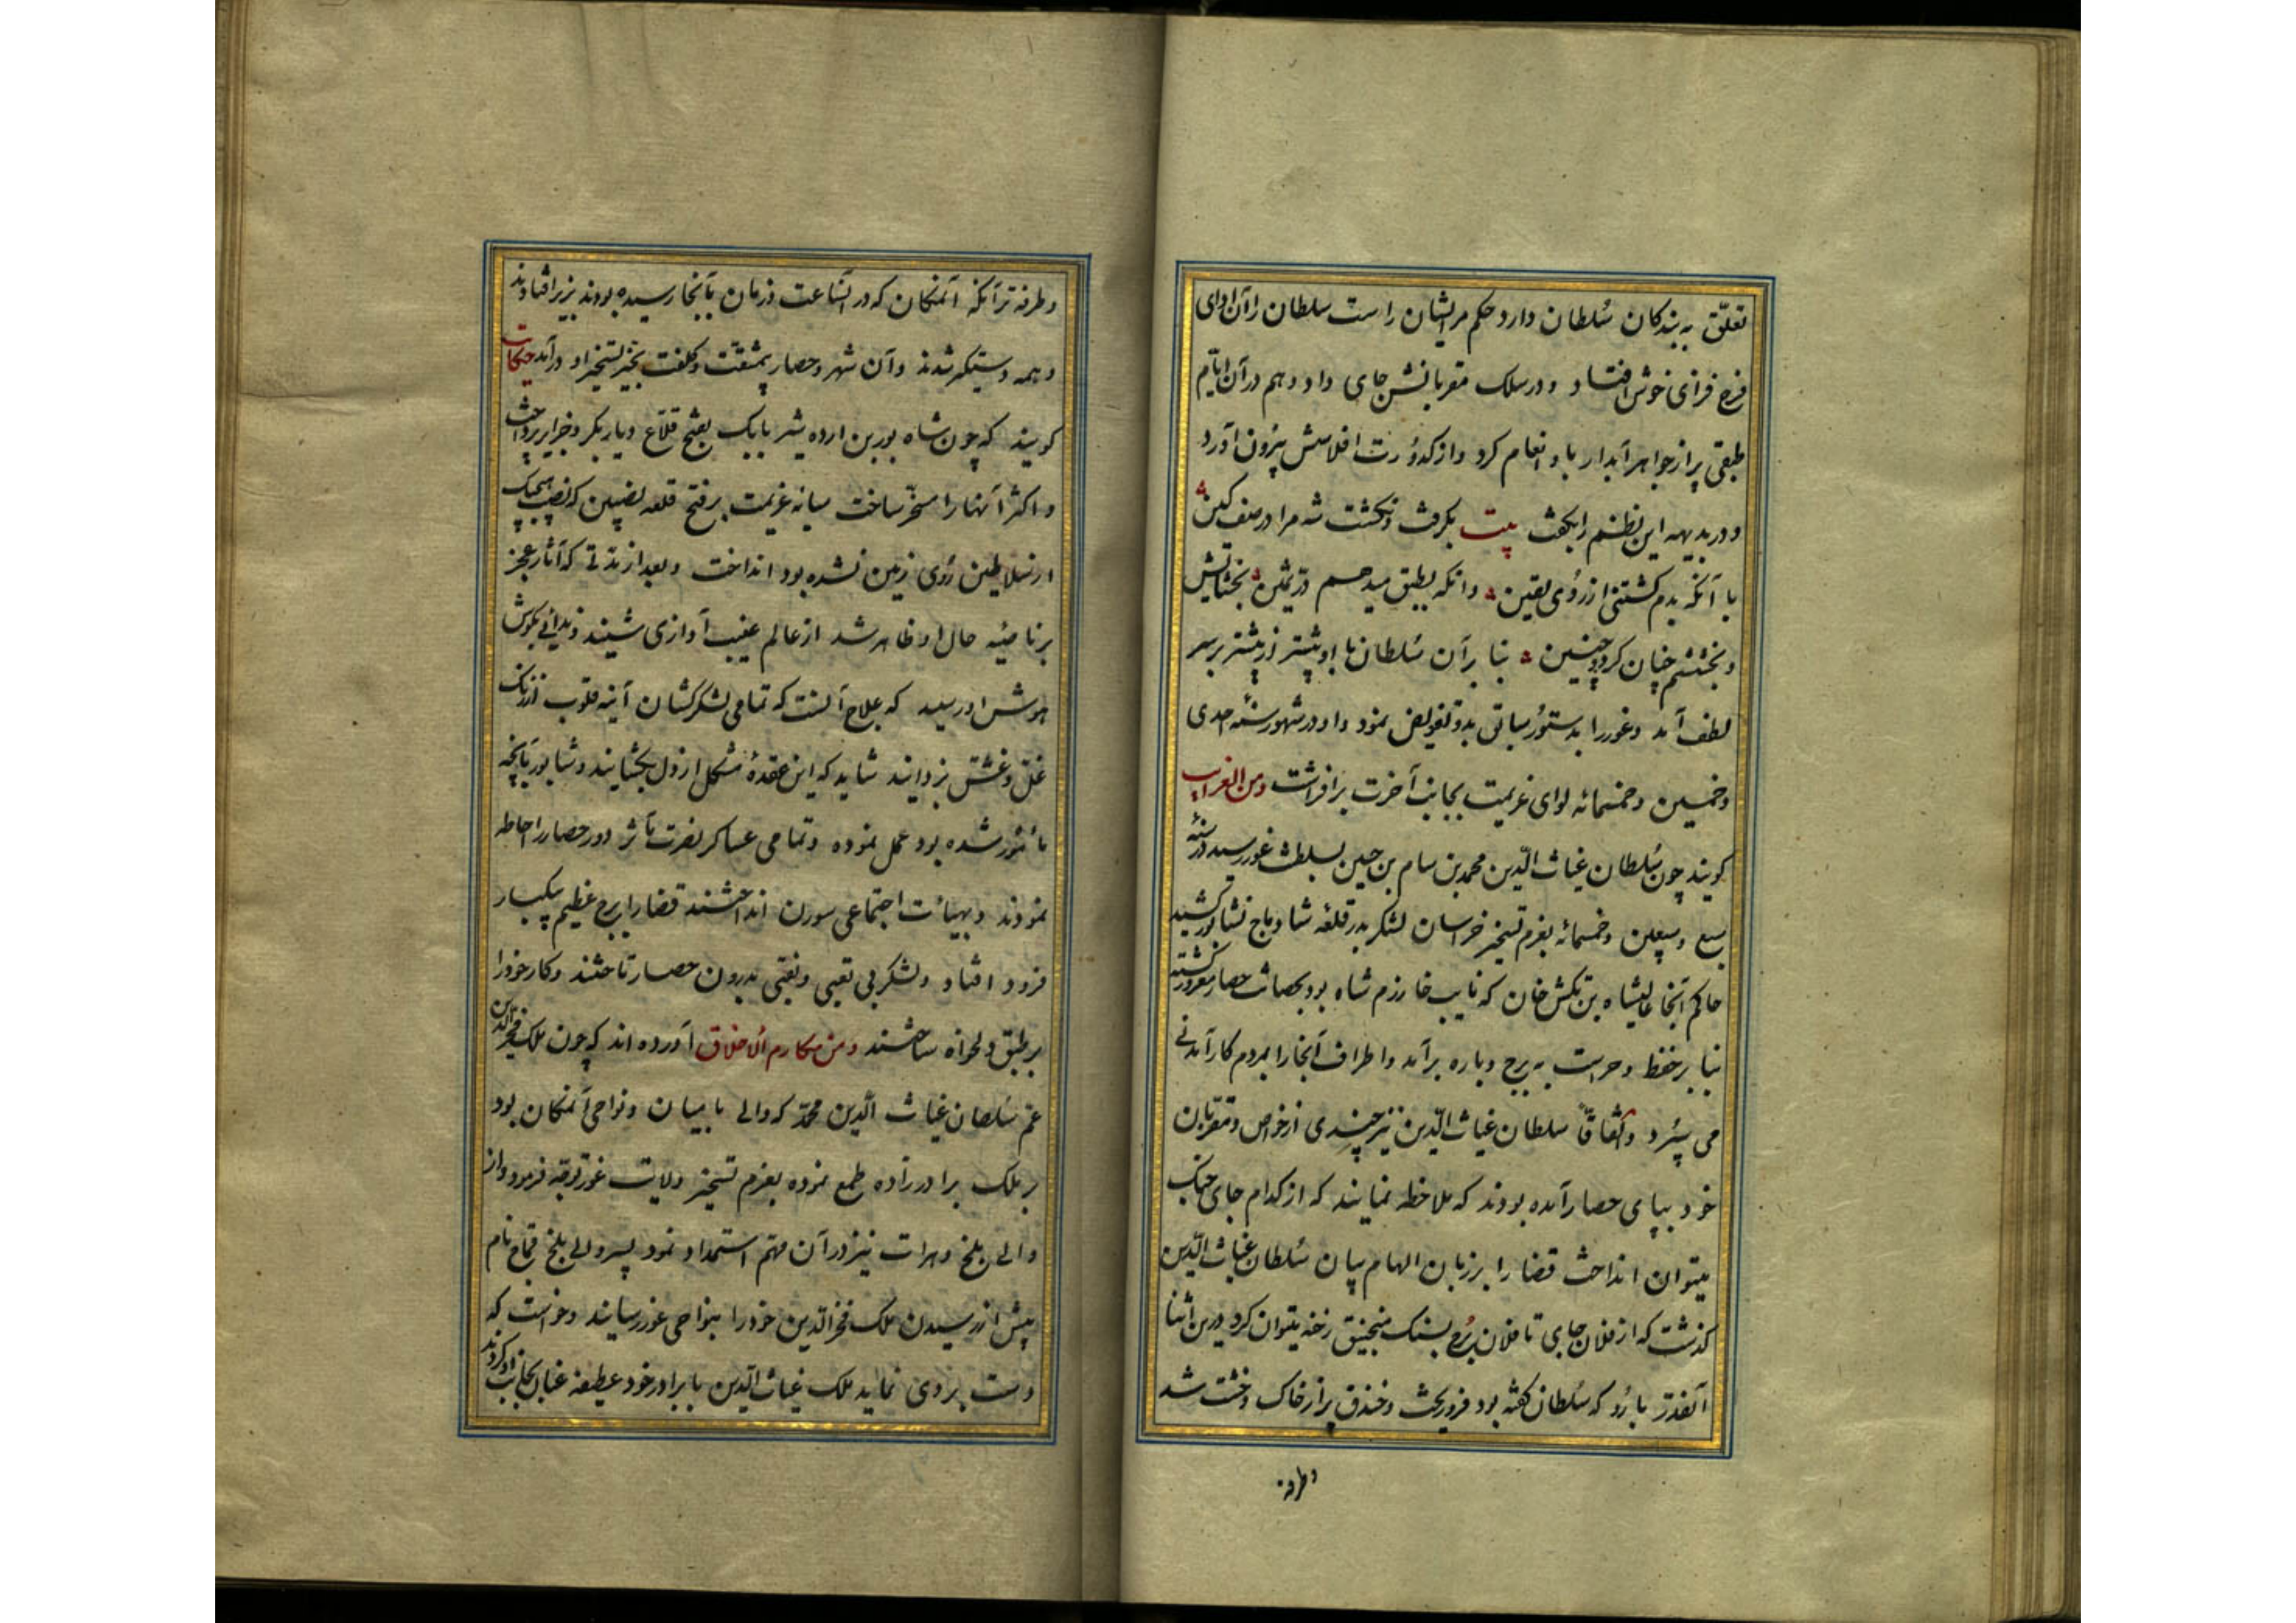 تعلّق به بندکان سُلطان دارد حکم مر ایشان راست سلطان را آن ادای
فرح فزای خوش افتاد و در سلک مقربانش جای داد و هم در آن ایّام
طبقی پر از جواهر آبدار باو انعام کرد و از کدوُرت افلاسش بیرُون آورد
و در بدیهه این نظم را بکفت بیت بکرفت و نکشت شه مرا در صف کین
با آنکه بدم کشتنی از رُوی یقین وانکه بطبق میدهم درّ ثمین بخشایش
و بخششم چنان کرد و چنین بنا بر آن سُلطان با او بیشتر از پیشتر بر سر
لطف آمد و غور را بدستوُر سابق بدو تفویض نمود و او در شهور سنه احدی
و خمسین و خمسمائه لوای عزیمت بجانب آخرت برافراشت و من الغرایب
کویند چون سُلطان غیاث الدّین محمد بن سام بن حسین بسلطنت غور رسید در سنه
سبع و سبعین و خمسمائه بعزم تسخیر خراسان لشکر بدر قلعه شادیاخ نشابور کشید
حاکم آنجا علیشاه بن تکش خان که نایب خارزم شاه بود بحصانت حصار مغرور کشته
بنا بر حفظ و حراست به برج و باره برآمد و اطراف آنجا را بمردم کار آمدنی
می سپُرد و اتفاقاً سلطان غیاث الدّین نیز چندی از خواص و مقرّبان
خود بپای حصار آمده بودند که ملاحظه نمایند که از کدام جای جنک
میتوان انداخت قضا را بر زبان الهام بیان سُلطان غیاث الدّین
کذشت که از فلان جای تا فلان برُج بسنک منجنیق رخنه میتوان کرد درین اثنا
آنقدر بارُو که سُلطان کفته بود فرو ریخت و خندق پر از خاک و خشت شد
و طرفه
و طرفه تر آنکه آنمکان که در آنساعت در زمان بآنجا رسیده بودند بزیر افتادند
و همه دستیکر شدند و آن شهر و حصار بی مشقّت و کلفت بحیّز تسخیر او درآمد حکایت
کویند که چون شاه بور بن اردشیر بابک بفتح قلاع دیار بکر و جزایر پرداخت
و اکثر آنها را مسخّر ساخت سایه عزیمت بر فتح قلعه نصیبین که نصیب هیچیک
از سلاطین رُوی زمین نشده بود انداخت و بعد از مدتی که آثار عجز
بر ناصیه حال او ظاهر شد از عالم غیب آوازی شنید و ندائی بکوش
هوشش او رسید که علاج آنست که تمامی لشکرکشان آینه قلوب از زنک
غلّ و غشّ بزدایند شاید که این عقدهٔ مشکل از دل بکشایند و شابور بآنچه
مأمُور شده بود عمل نموده و تمامی عساکر نصرت مآثر دور حصار را احاطه
نمودند و بهیأت اجتماعی سورن انداختند قضا را برج عظیم بیکبار
فرود افتاد و لشکر بی تعبی و نقبی بدرون حصار تاختند و کار خود را
بر طبق دلخواه ساختند و من مکارم الاخلاق آورده اند که چون ملک فخر الدین
عم سُلطان غیاث الّدین محمّد که والی بامیان و نواحی آنمکان بود
بر ملک برادرزاده طمع نموده بعزم تسخیر ولایت غور توجّه فرمود و از
والی بلخ و هرات نیز در آن مهّم استمداد نمود پسر والی بلخ قماج نام
پیش از رسیدن ملک فخر الدّین خود را بنواحی غور رسانید و خواست که
دست بردی نماید ملک غیاث الدّین با برادر خود عطیعه عنان بجانب او کردند